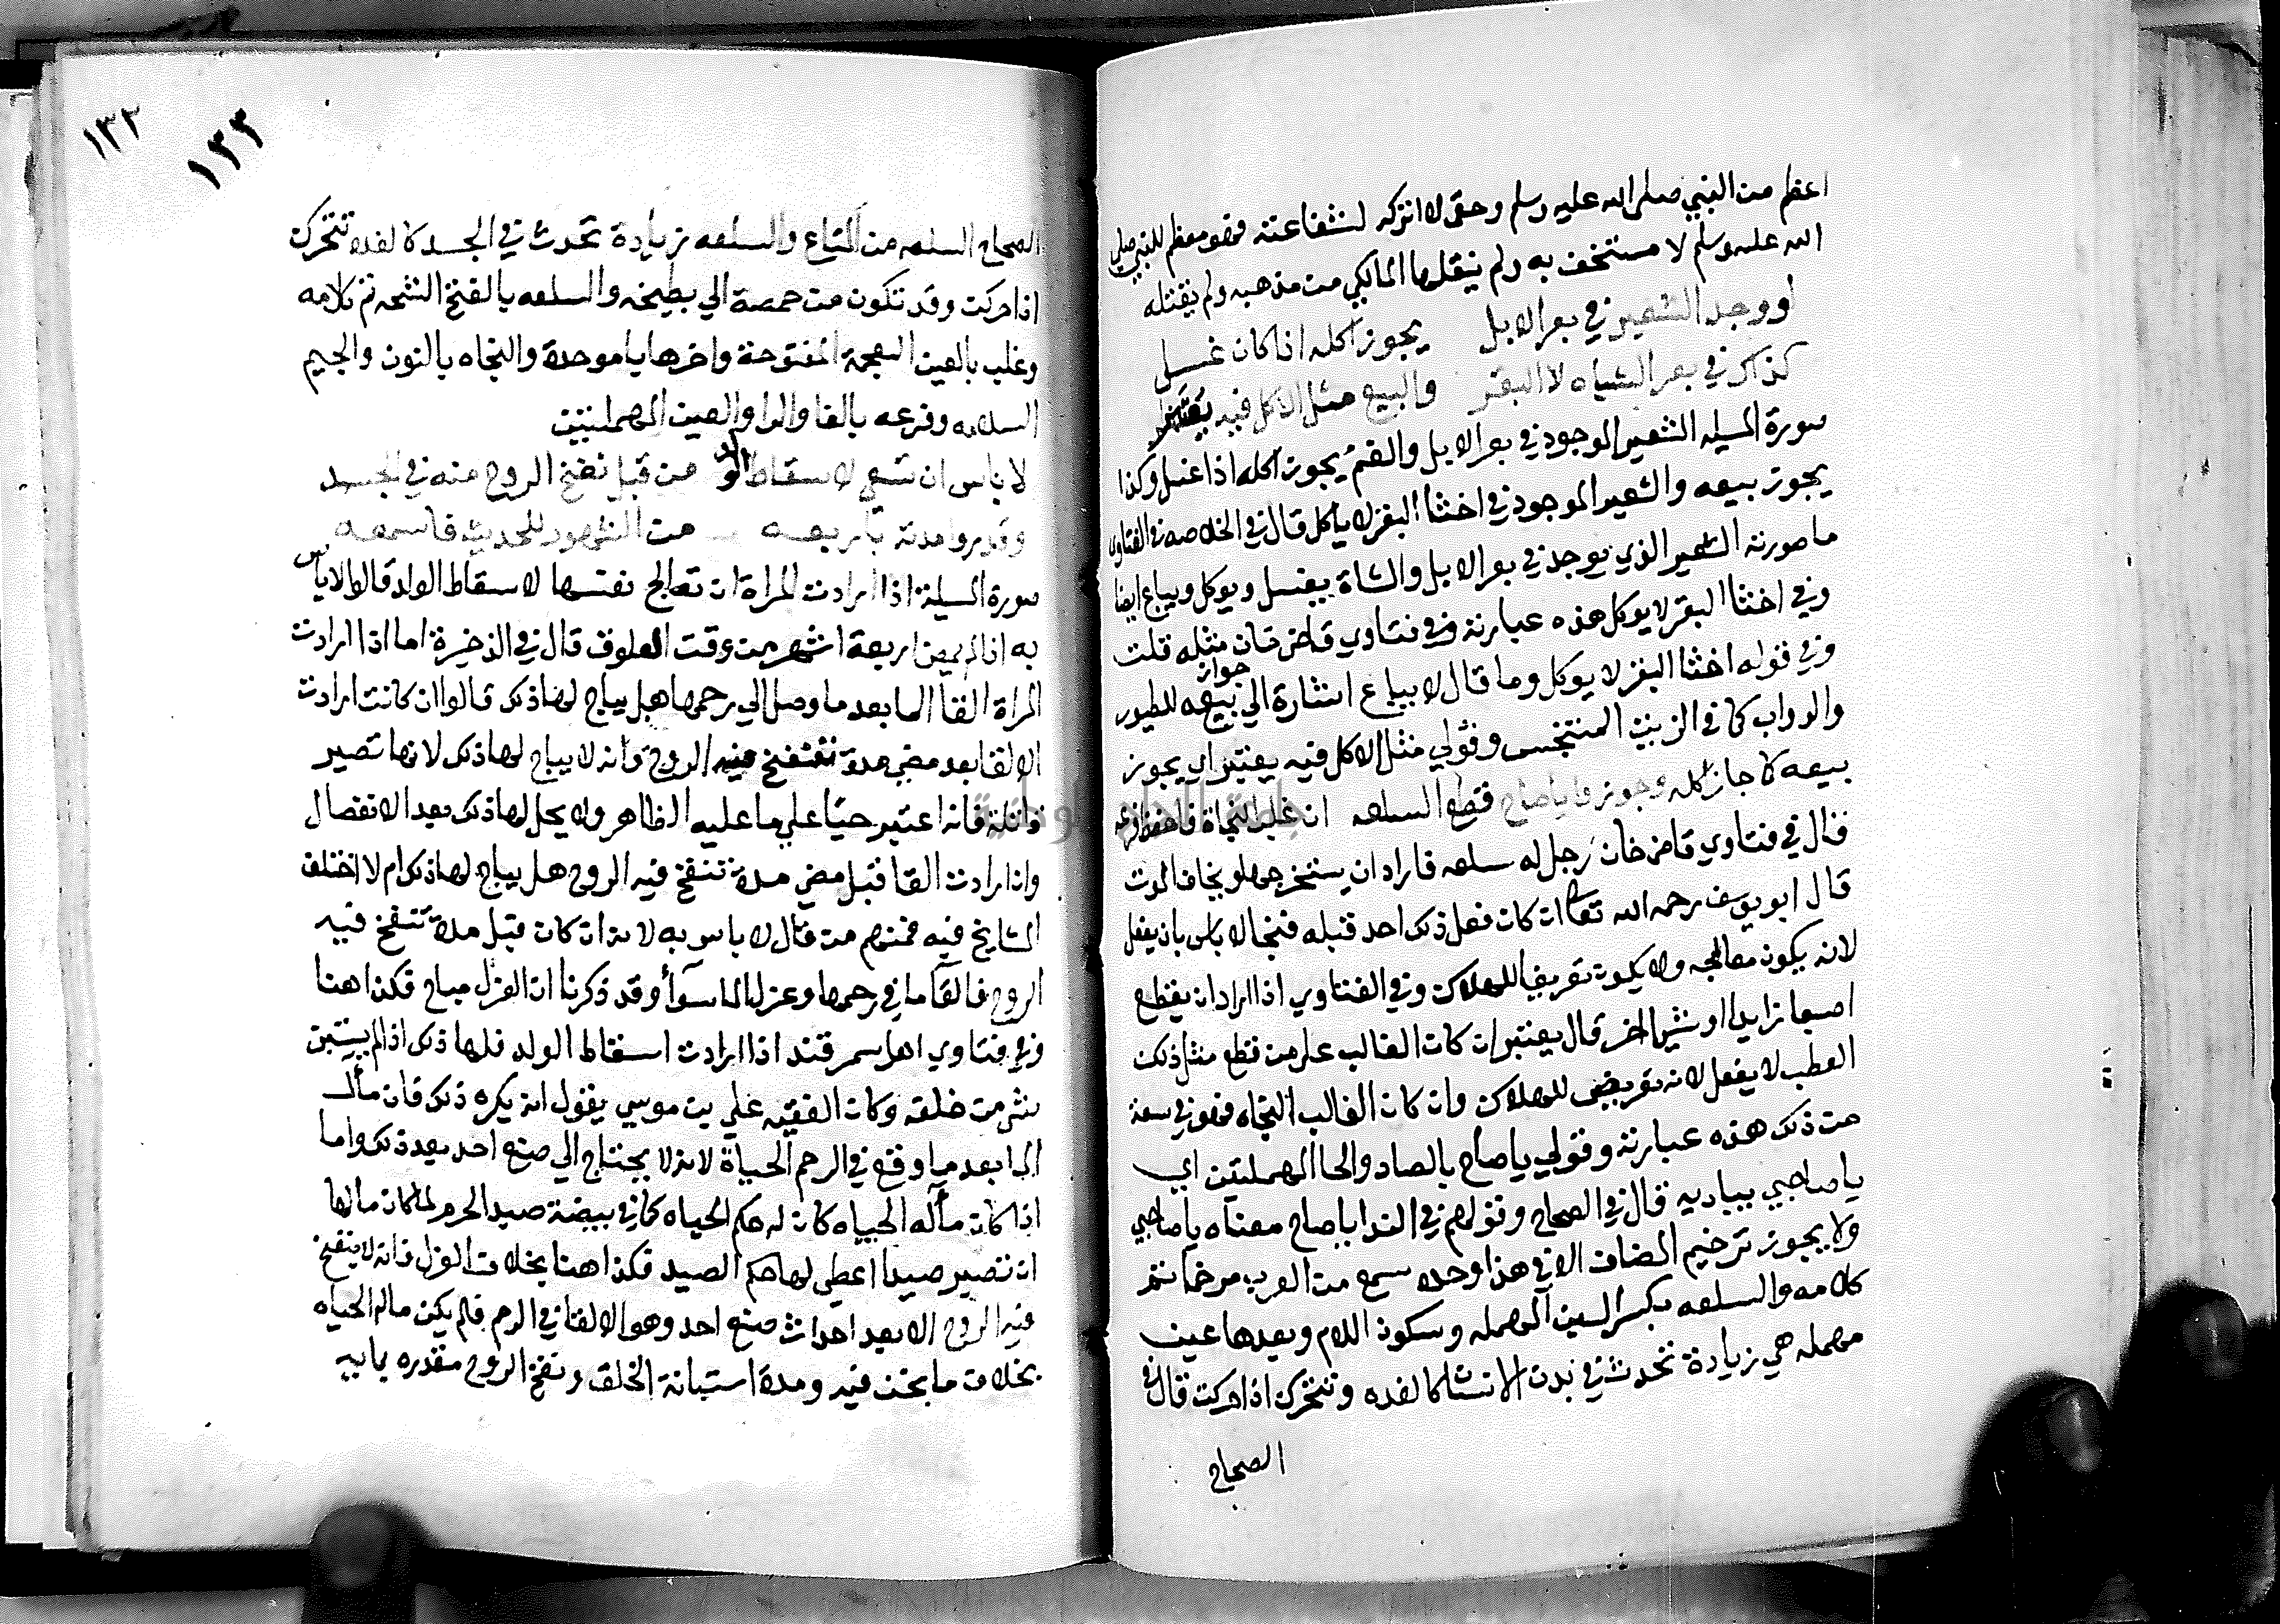 اعظم من النبي صلى الله عليه وسلم وحق لا اتركه لشفاعته فهو معظم للنبي صلى
الله عليه وسلم لا مستخف به ولم ينقلها المالكي من مذهبه ولم يقتله
لو وجد الشعير في بعر الابل يجوز اكله اذا كان غسل
كذاك في بعر الشياه لا البقر والبيع مثل الاكل فيه يعتبر
صورة المسيله الشعير الموجود في بعر الابل والغنم يجوز اكله اذا غسل وكذا
يجوز بيعه والشعير الموجود في اخثا البقر لا ياكل قال في الخلاصه في الفتاوي
ما صورته الشعير الذي يوجد في بعر الابل والشاة يغسل ويوكل ويباع ايضا
وفي اخثا البقر لا يوكل هذه عبارته وفي فتاوي قاضي خان مثله قلت
وفي قوله اخثا البقر لا يوكل وما قال لا يباع اشارة الي جواز بيعه للطيور
والدواب كما في الزيت المتنجس وقولي مثل الاكل فيه يعتبر اي يجوز
بيعه كما جاز اكله وجوزوا يا صاح قطع السلعه ان غلب النجاة فاحفظ فرعه
قال في فتاوي قاضي خان رجل له سلعه فاراد ان يستخرجها ويخاف الموت
قال ابو يوسف رحمه الله تعالى ان كان فعل ذلك احد قبله فنجا لا باس بان يفعل
لانه يكون معالجه ولا يكون تعريضا للهلاك وفي الفتاوي اذا اراد ان يقطع
اصبعا زايدا او شيا اخر قال يعتبر ان كان الغالب علي من قطع مثل ذلك
العطب لا يفعل لانه تعريض للهلاك وان كان الغالب النجاه فهو في سعة
من ذلك هذه عبارته وقولي يا صاح بالصاد والحا المهملتين اي
يا صاحبي يناديه قال في الصحاح وقولهم في الندا يا صاح معناه يا صاحبي
ولا يجوز ترخيم المضاف الا في هذا وحده سمع من العرب مرخما تم
كلامه والسلعه بكسر السين المهمله وسكون اللام وبعدها عين
مهمله هي زيادة تحدث في بدن الانسان كالغده وتتحرك اذا حركت قال في
الصحاح
١٣٢
١٣٢
الصحاح السلعه من المتاع والسلعه زيادة تحدث في الجسد كالغده تتحرك
اذا حركت وقد تكون من حمصة الي بطيخه والسلعه بالفتح الشجه تم كلامه
وغلب بالغين المعجمة المفتوحة واخرها با موحدة والنجاه بالنون والجيم
السلامه وفرعه بالفا والرا والعين المهملتين
لا باس ان تسعى لاسقاط الولد من قبل نفخ الروح منه في الجسد
وقدروا مدته باربعه من الشهور للحديث فاسمعه
صورة المسيلة اذا ارادت المراة ان تعالج نفسها لاسقاط الولد قالوا لا باس
به اذا لم يمض اربعة اشهر من وقت العلوق قال في الذخيرة اما اذا ارادت
المراة القا الما بعد ما وصل الي رحمها هل يباح لها ذلك قالوا ان كانت ارادت
الالقا بعد مضي مدة تنفخ فيه الروح فانه لا يباح لها ذلك لانها تصير
قاتلة فانه اعتبر حيا علي ما عليه الظاهر ولا يحل لها ذلك بعد الانفصال
واذا ارادت القا قبل مضي مدة تنفخ فيه الروح هل يباح لها ذلك ام لا اختلف
المشايخ فيه فمنهم من قال لا باس به لانه ان كان قبل مدة تنفخ فيه
الروح فالقا ما في رحمها وعزل الما سوا وقد ذكرنا ان العزل مباح فكذا هنا
وفي فتاوي اهل سمرقند اذا ارادت اسقاط الولد فلها ذلك اذا لم يستبن
شي من خلقه وكان الفقيه علي بن موسي يقول انه يكره ذلك فان مال
الما بعد ما وقع في الرحم الحياة لانه لا يحتاج الي صنع احد بعد ذلك واما
اذا كان مآله الحياه كان له حكم الحياه كما في بيضة صيد الحرم لما كان مالها
ان تصير صيدا اعطي لها حكم الصيد فكذا هنا بخلاف العزل فانه لا ينفخ
فيه الروح الا بعد احداث صنع احد وهو الالقا في الرحم فلم يكن ماله الحياه
بخلاف ما نحن فيه ومدة استبانة الخلق ونفخ الروح مقدره بمايه